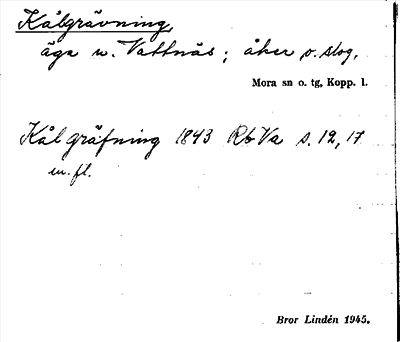 Kålgrävning,
äga u. Vattnäs; åker o. slog.
Mora sn o. tg, Kopp. l.
Kålgräfning 1843 Rb Va s. 12, 17
m. fl.
Bror Lindén 1945.